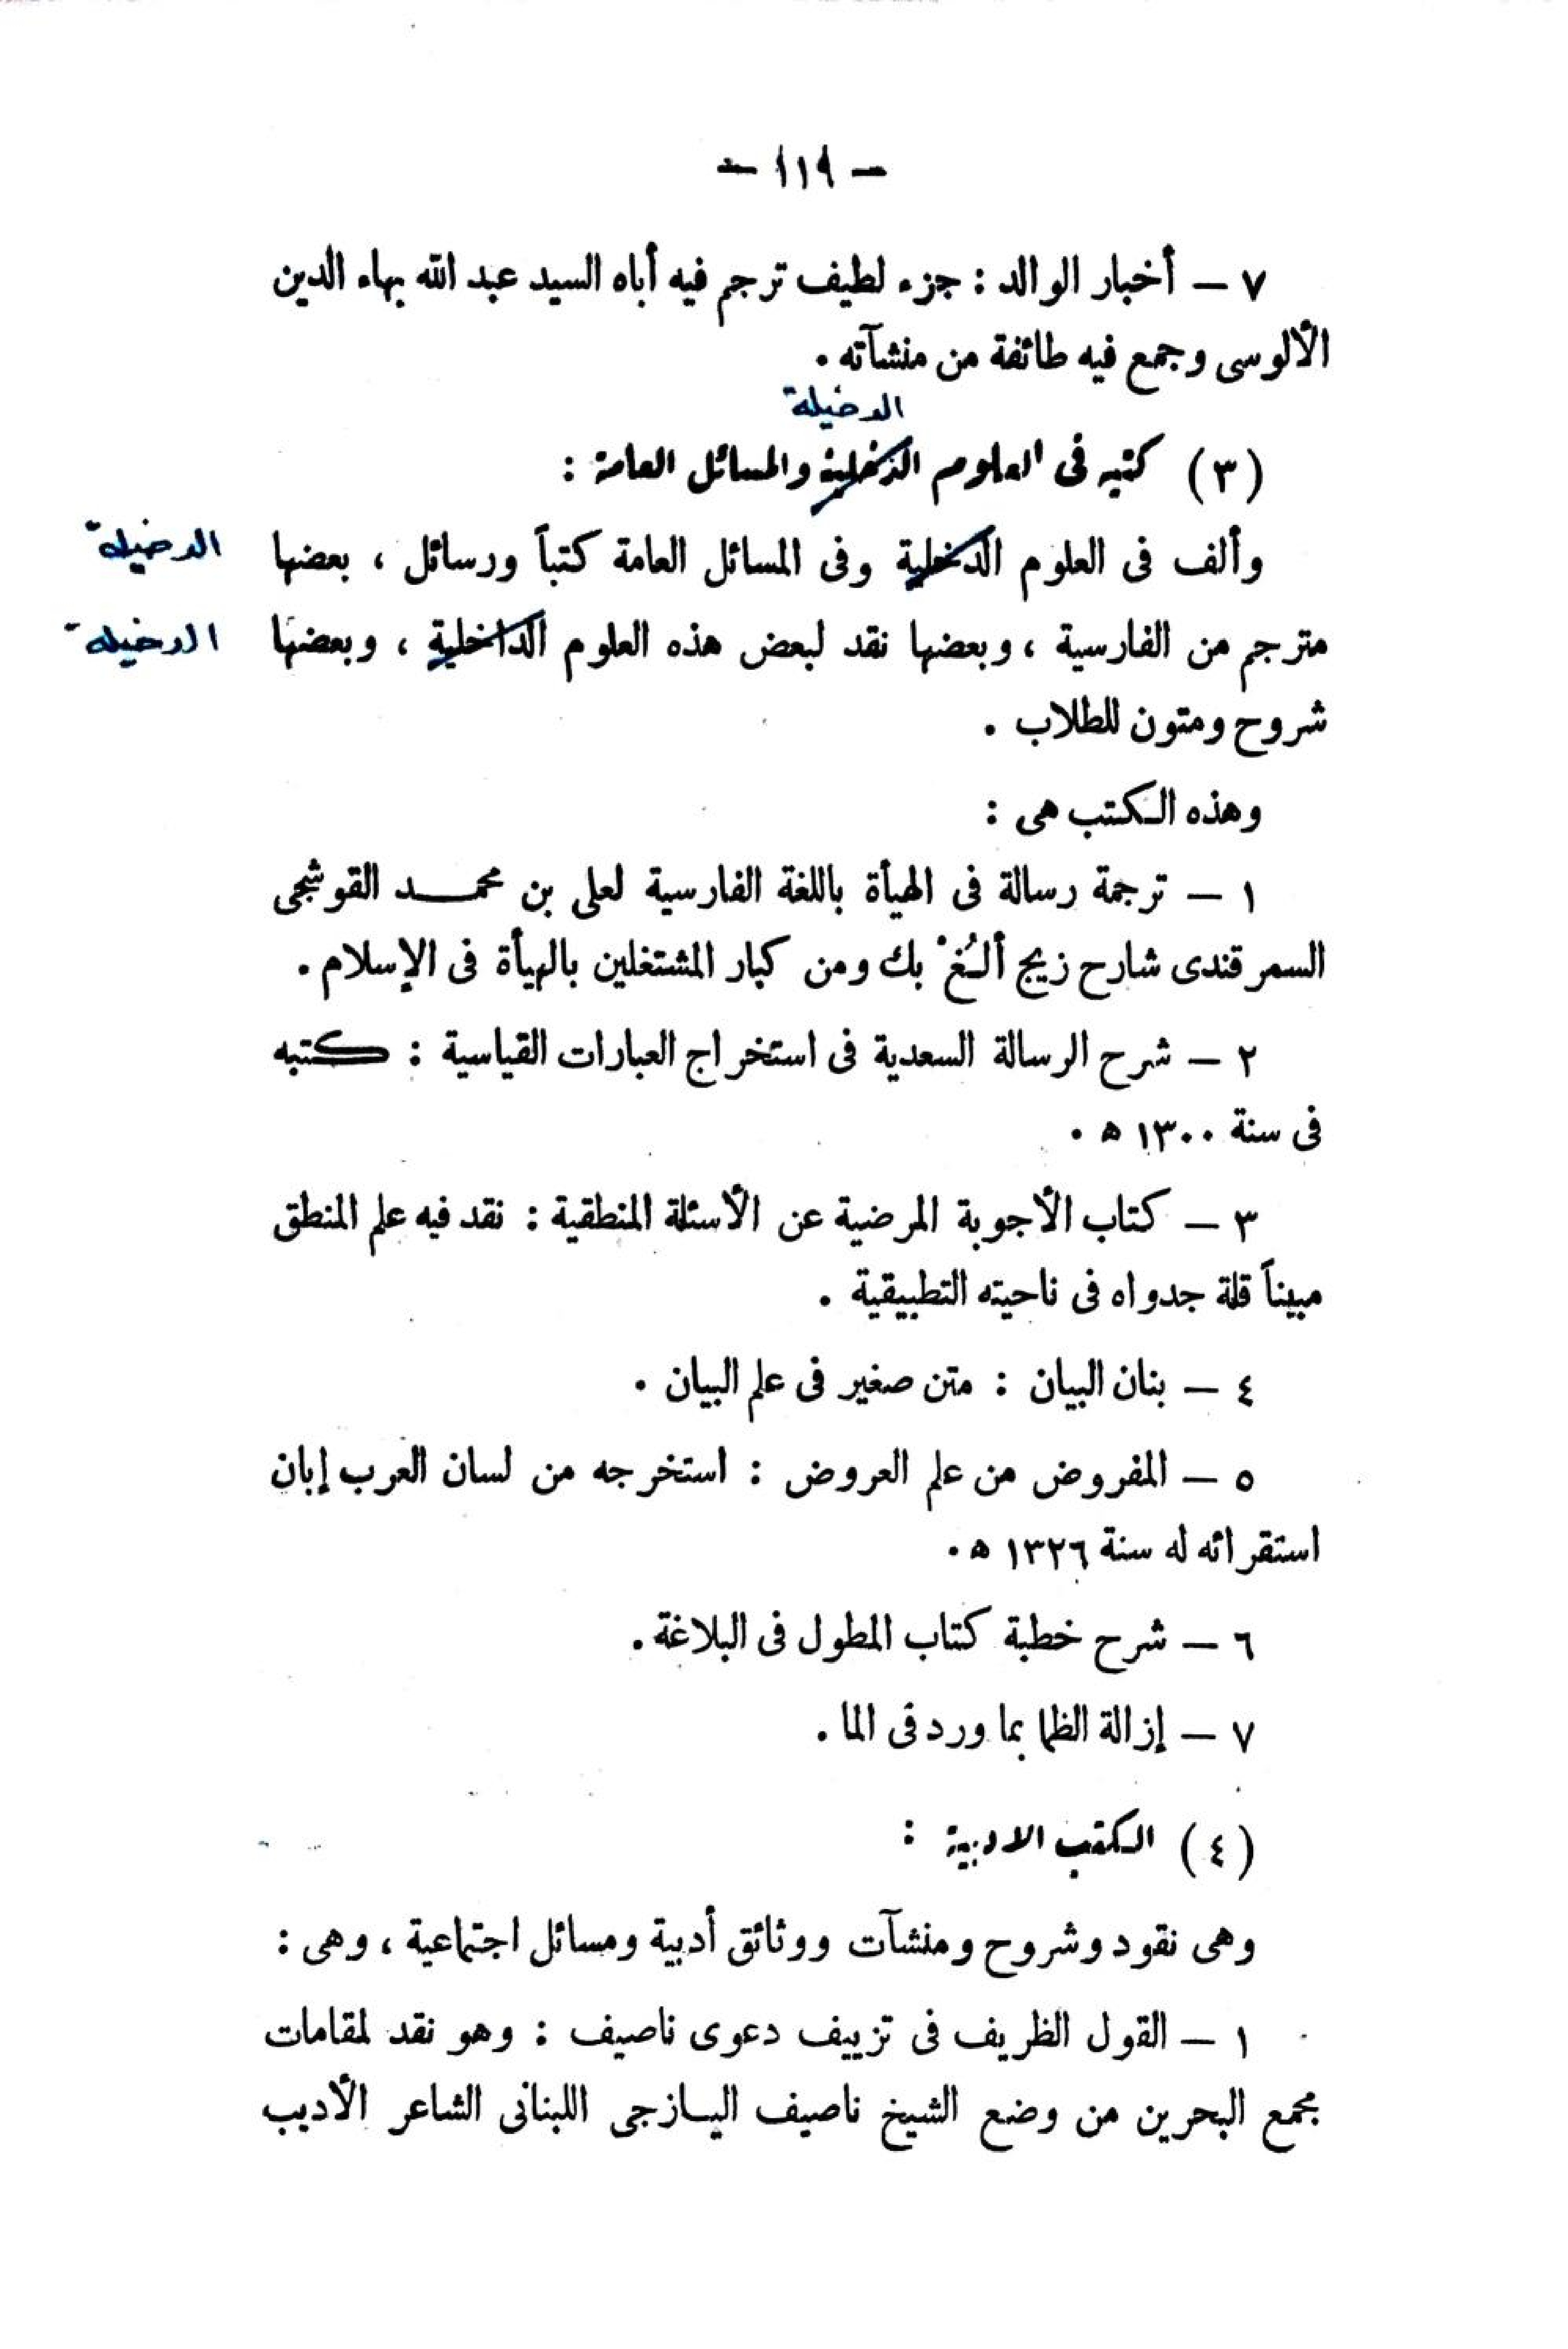 — ١١٩ —
٧ — أخبار الوالد : جزء لطيف ترجم فيه أباه السيد عبد الله بهاء الدين
الألوسى وجمع فيه طائفة من منشآته .
الدخيلة
( ٣ ) كتبه فى العلوم الدخلية والمسائل العامة :
وألف فى العلوم الدخلية وفى المسائل العامة كتباً ورسائل ، بعضها
الدخيلة
مترجم من الفارسية ، وبعضها نقد لبعض هذه العلوم الداخلية ، وبعضها
الدخيلة
شروح ومتون للطلاب .
وهذه الكتب هى :
١ — ترجمة رسالة فى الهيأة باللغة الفارسية لعلى بن محمد القوشجى
السمرقندى شارح زيج ألُغْ بك ومن كبار المشتغلين بالهيأة فى الإسلام .
٢ — شرح الرسالة السعدية فى استخراج العبارات القياسية : كتبه
فى سنة ١٣٠٠ ه .
٣ — كتاب الأجوبة المرضية عن الأسئلة المنطقية : نقد فيه علم المنطق
مبيناً قلة جدواه فى ناحيته التطبيقية .
٤ — بنان البيان : متن صغير فى علم البيان .
٥ — المفروض من علم العروض : استخرجه من لسان العرب إبان
استقرائه له سنة ١٣٢٦ ه .
٦ — شرح خطبة كتاب المطول فى البلاغة .
٧ — إزالة الظما بما ورد فى الما .
( ٤ ) الكتب الادبية :
وهى نقود وشروح ومنشآت ووثائق أدبية ومسائل اجتماعية ، وهى :
١ — القول الظريف فى تزييف دعوى ناصيف : وهو نقد لمقامات
مجمع البحرين من وضع الشيخ ناصيف اليازجى اللبنانى الشاعر الأديب